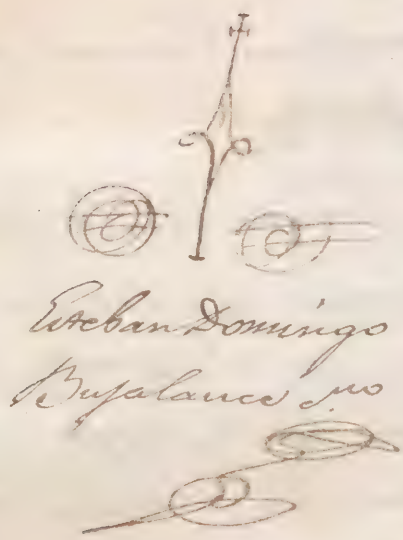 Esteban Domingo
Bujalance